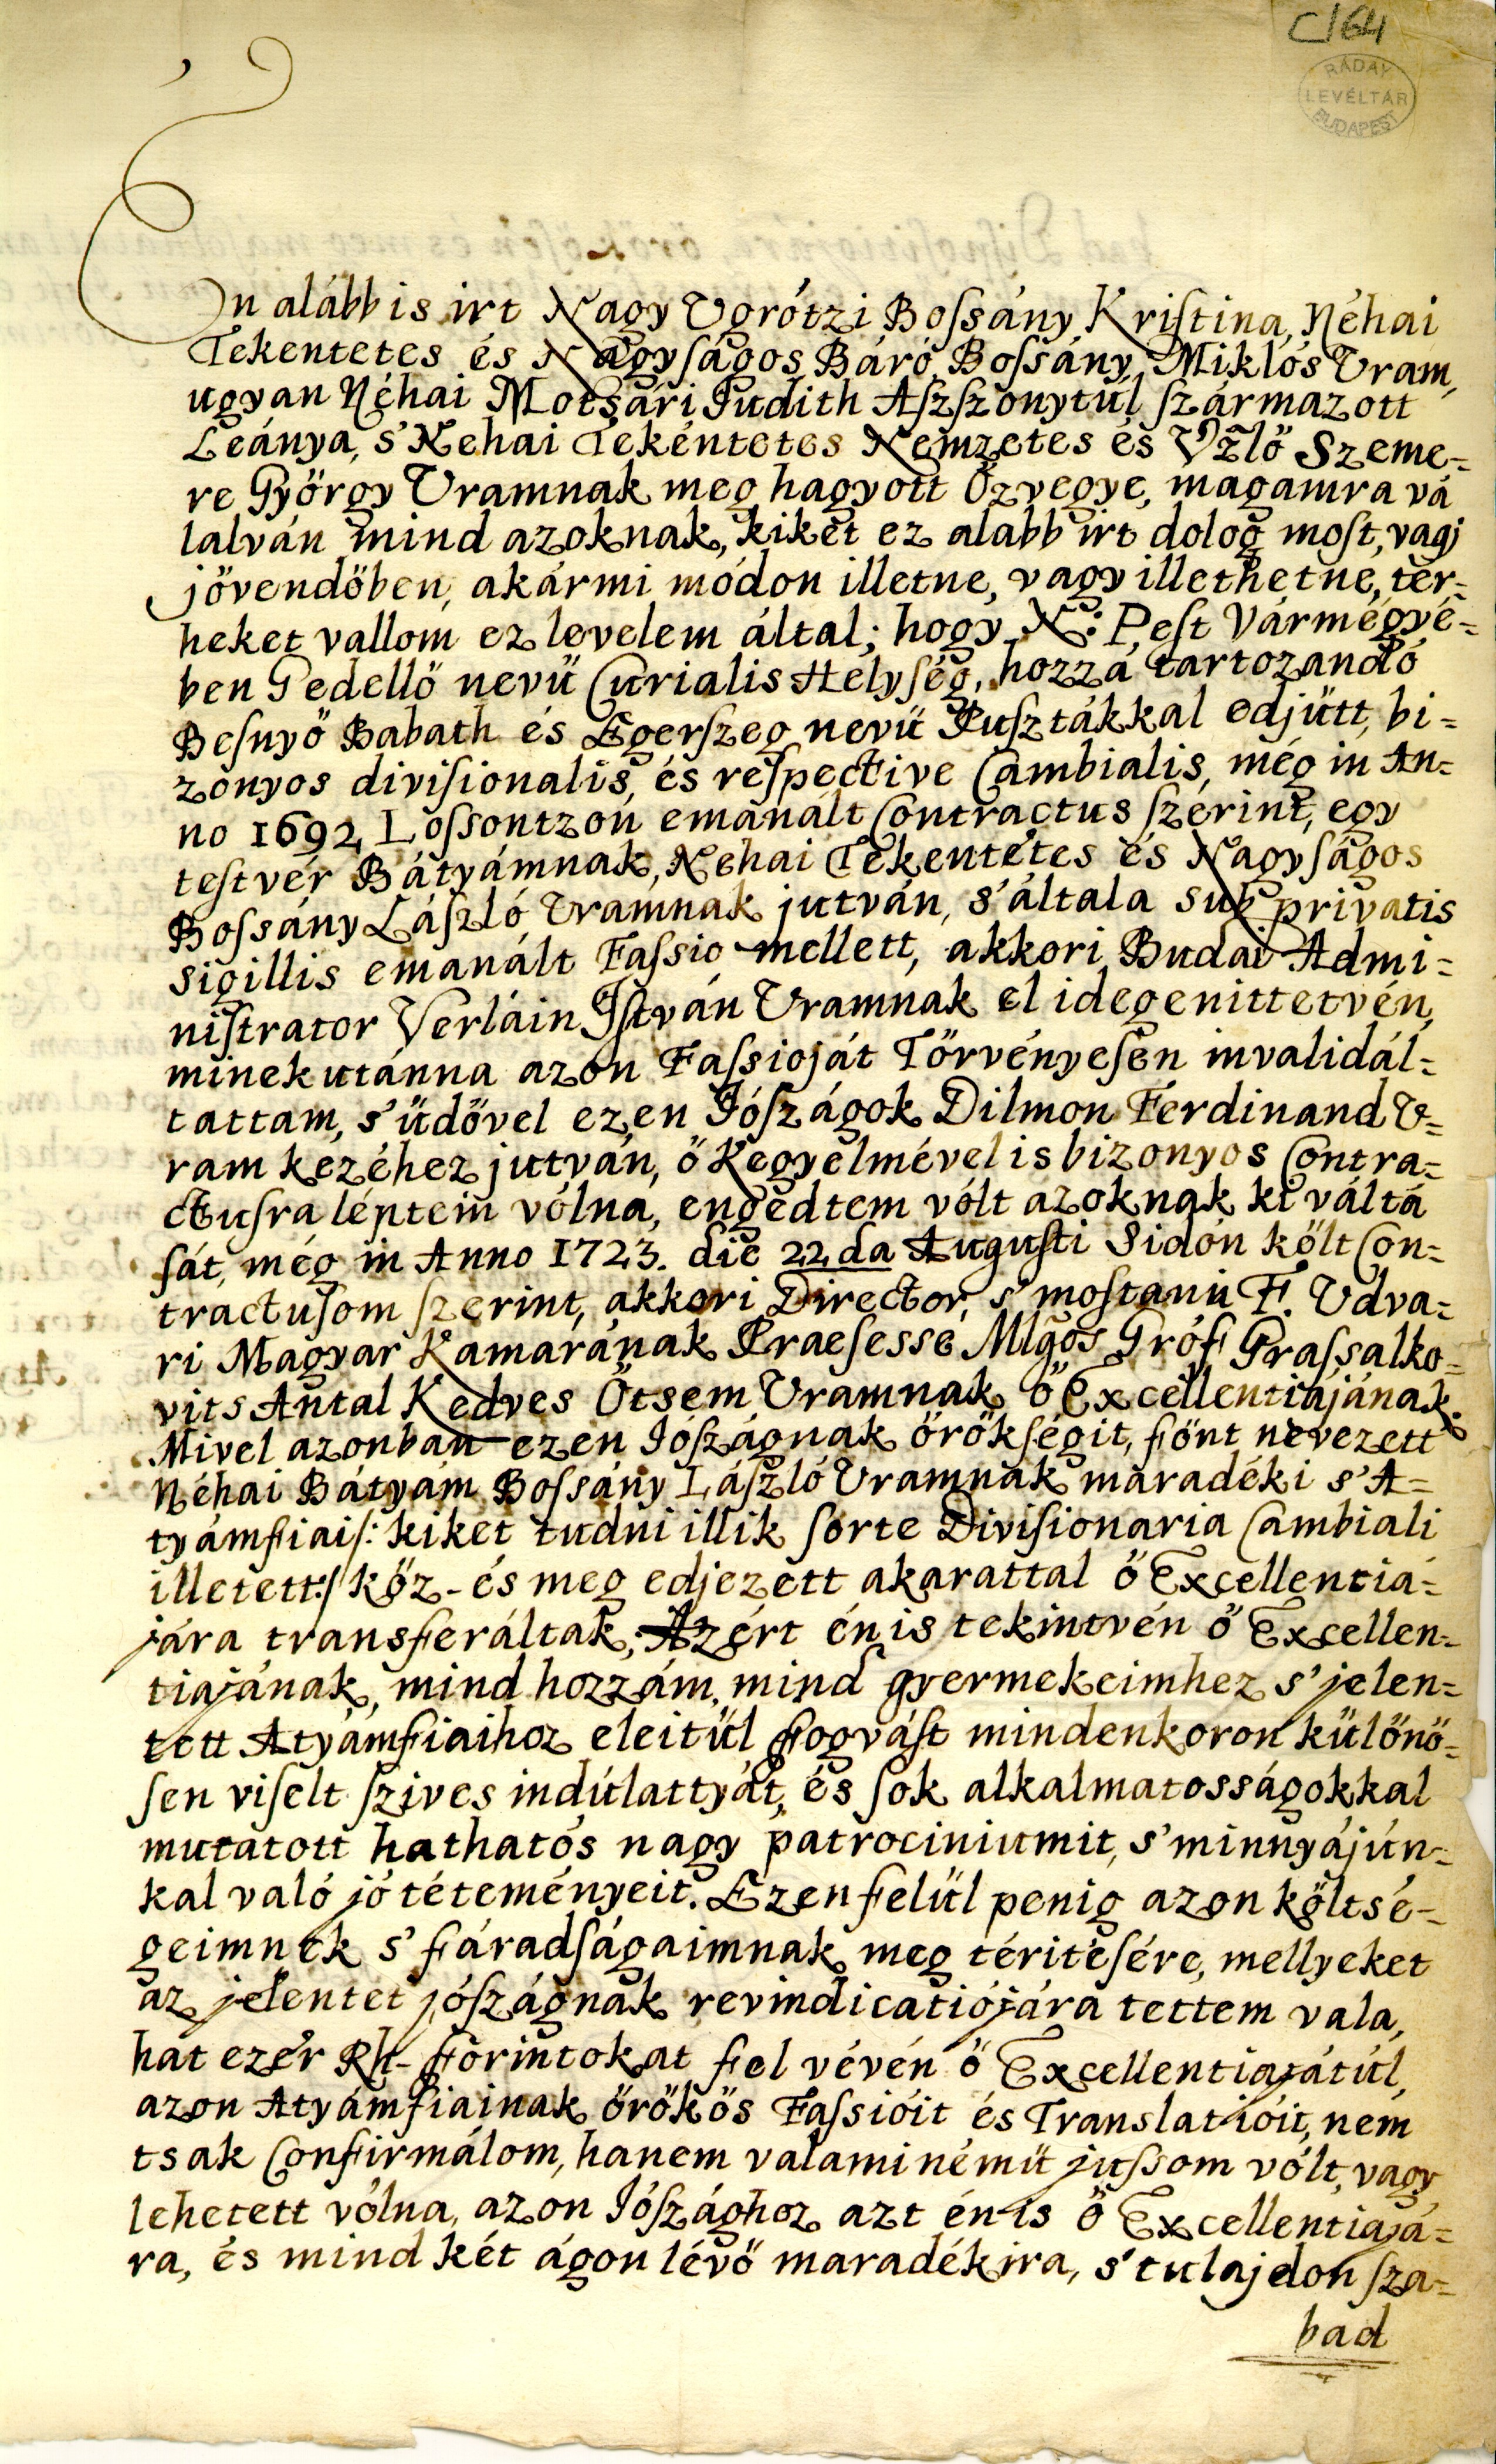 C164
RÁDAY
LEVÉLTÁR
BUDAPEST
En alább is irt Nagy Ugrótzi Boſsány Kriſtina, Néhai
Tekentetes és Nagyſágos Báró Boſsány Miklós Uram,
ugyan Néhai Motsári Judith Aſzſzonytúl ſzármazott
Leánya, s' Nehai Tekéntetes Nemzetes és Vzlö Szeme=
re György Uramnak meg hagyott Özvegye, magamra vá
lalván mind azoknak, kiket ez alabb irt dolog moſt, vagj
jövendöben, akármi módon illetne, vagy illethetne, ter=
heket vallom ez levelem által; hogy N: Peſt Vármégyé=
ben Gedellö nevü Curialis Hélyſég, hozzá tartozandó
Beſnyö Babath és Egerſzeg nevü Puſztákkal edjütt, bi=
zonyos diviſionalis, és reſpective Cambialis, még in An=
no 1692 Loſsontzon emanált Contractus ſzérint, egy
teſtvér Bátyámnak, Nehai Tekentétes és Nagyſágos
Boſsány László Uramnak jutván, s' általa sub privatis
sigillis emanált Faſsio mellett, akkori Budai Admi=
niſtrator Verláin Iſtván Uramnak el idegenittetvén,
minekutánna azon Faſsioját Törvényeſen invalidál=
tattam, s' üdövel ezen Jóſzágok Dilmon Ferdinand U=
ram kezéhez jutván, ö Kegyelmével is bizonyos Contra=
ctuſra léptem vólna, engedtem vólt azoknak ki váltá
ſát, még in Anno 1723. die 22da Auguſti Sidón költ Con=
tractuſom ſzerint, akkori Director, s' moſtani F. Udva=
ri Magyar Kamarának Praeſeſse, Mlgos Gróf Graſsalko=
vits Antal Kedves Ötsem Uramnak ö Excellentiájának.
Mivel azonban ezen Jóſzágnak örökſégit, fönt nevezett
Néhai Bátyám Boſsány László Uramnak maradéki s' A=
tyámfiai/: kiket tudni illik ſorte Diviſionaria Cambiali
illetett:/ köz- és meg edjezett akarattal ö Excellentiá=
jára transferáltak; Azért én is tekintvén ö Excellen=
tiajának, mind hozzám, mind gyermekeimhez s' jelen=
tett Atyámfiaihoz eleitül fogváſt mindenkoron különö=
ſen viſelt ſzives indúlattyát, és ſok alkalmatosságokkal
mutatott hathatós nagy patrociniumit, s' minnyájún=
kal való jó téteményeit. Ezen felül penig azon költsé=
geimnek s' fáradſágaimnak meg téritéſére, mellyeket
az jelentet jóſzágnak revindicatiójára tettem vala,
hat ezer Rh- forintokat fel vévén ö Excellentiajátúl,
azon Atyámfiainak örökös Faſsióit és Translatióit, nem
tsak Confirmálom, hanem valaminémü juſsom vólt, vagy
lehetett vólna, azon Jóſzághoz azt én is ö Excellentiajá=
ra, és mind két ágon lévö maradékira, s' tulajdon ſza=
bad